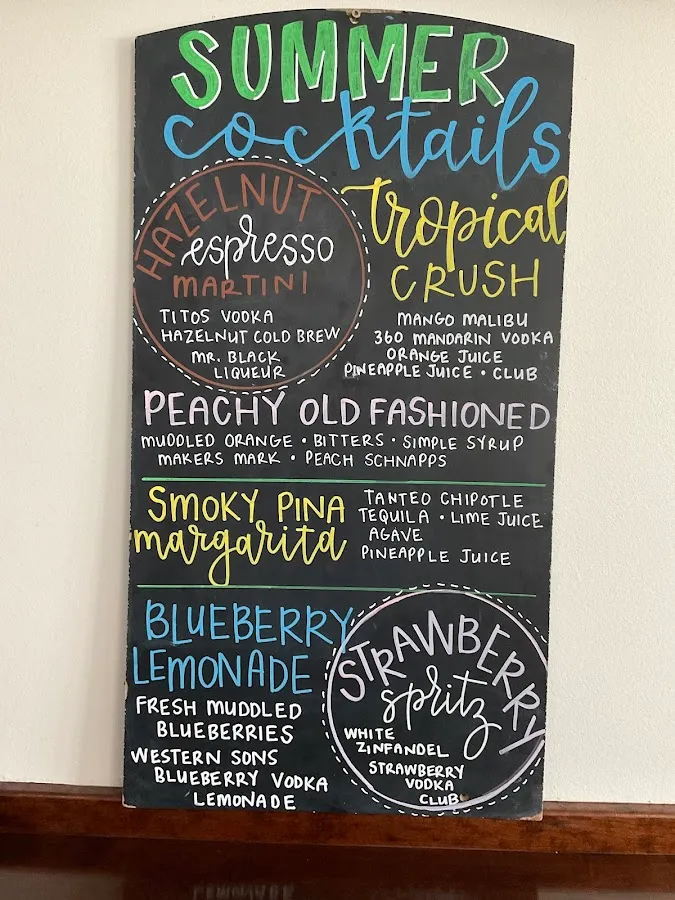 SUMMER
cocktails
HAZELNUT
espresso
MARTINI
TITOS VODKA
HAZELNUT COLD BREW
MR. BLACK
LIQUEUR
tropical
CRUSH
MANGO MALIBU
360 MANDARIN VODKA
ORANGE JUICE
PINEAPPLE JUICE • CLUB
PEACHY OLD FASHIONED
MUDDLED ORANGE • BITTERS • SIMPLE SYRUP
MAKERS MARK • PEACH SCHNAPPS
SMOKY PINA
margarita
TANTEO CHIPOTLE
TEQUILA • LIME JUICE
AGAVE
PINEAPPLE JUICE
BLUEBERRY
LEMONADE
FRESH MUDDLED
BLUEBERRIES
WESTERN SONS
BLUEBERRY VODKA
LEMONADE
STRAWBERRY
spritz
WHITE
ZINFANDEL
STRAWBERRY
VODKA
CLUB